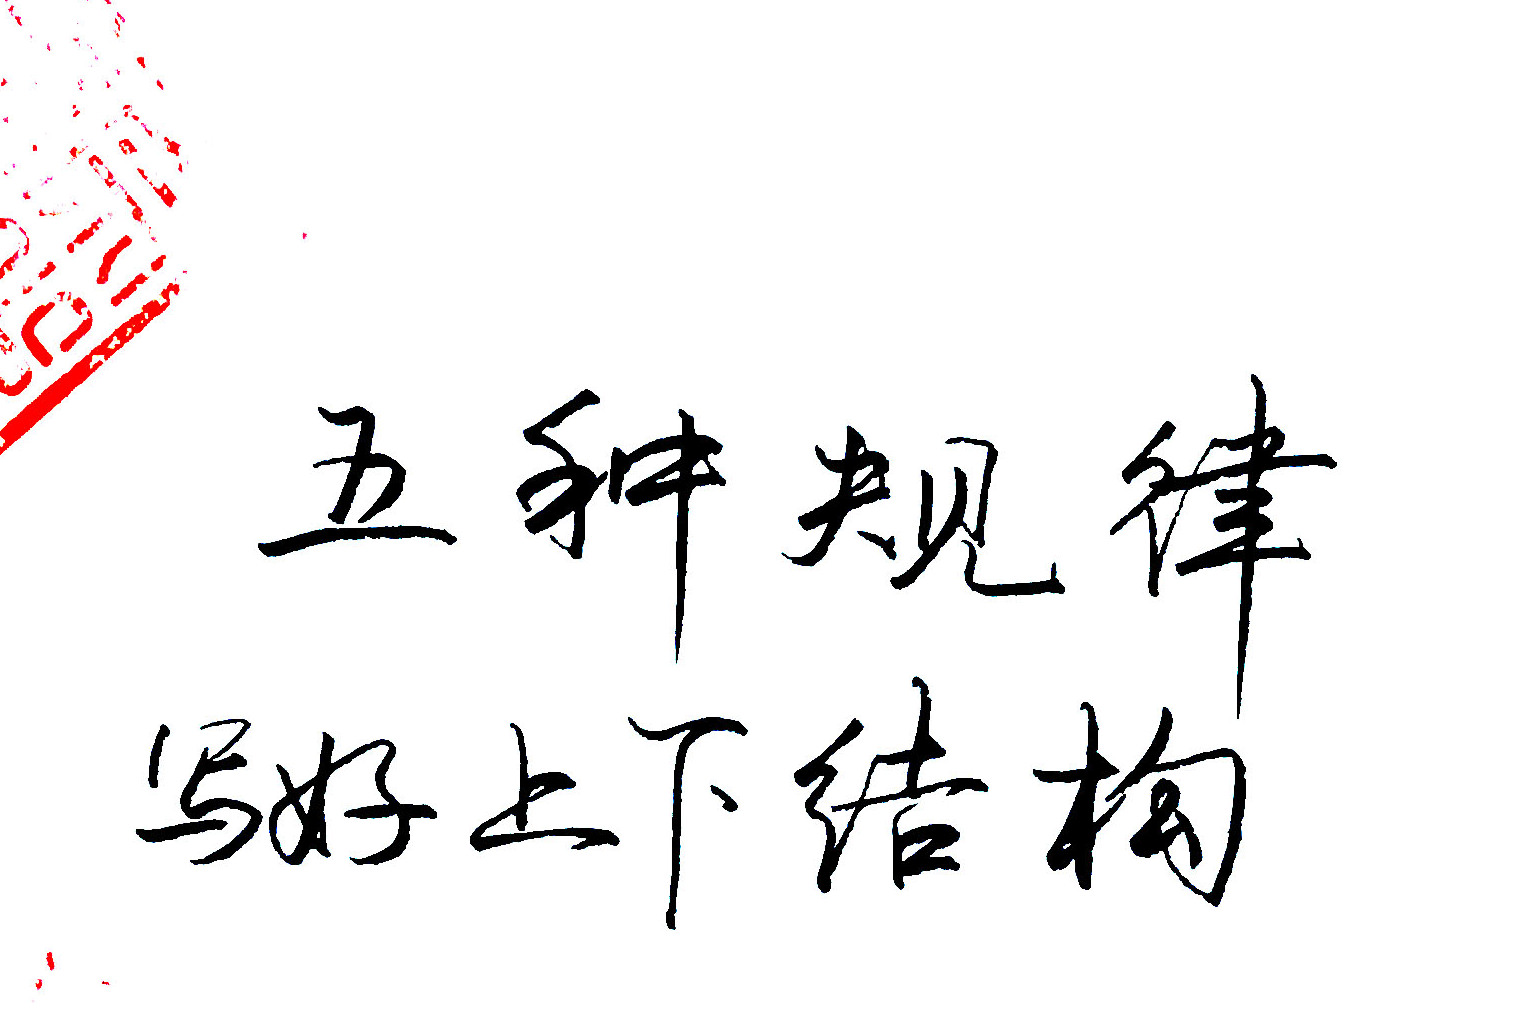 五种规律
写好上下结构